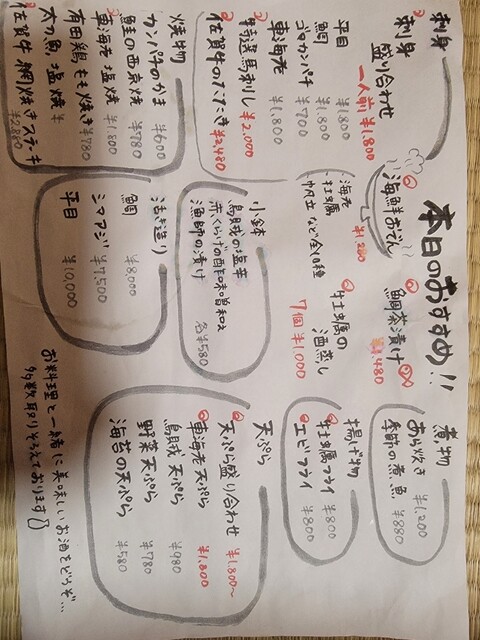 本日のおすすめ!!
刺身
刺身
盛り合わせ
一人前 ¥1,800
平目 ¥1,800
鯛 ¥1,800
ゴロカンパチ ¥700
車海老 ¥1,800
特選馬刺し ¥2,000
佐賀牛のたたき ¥2,480
焼物
カンパチのかま ¥600
鮭の西京焼 ¥780
車海老 塩焼 ¥1,800
有田鶏もも焼き ¥780
太刀魚 塩焼
佐賀牛 網焼きステーキ
¥2,880
海鮮おでん
¥1,280
海老
牡蠣
帆立 など全10種
鯛茶漬け
¥480
牡蠣の
酒蒸し
7個 ¥1,000
小鉢
烏賊の塩辛
赤くらげの酢味噌和え
漁師の漬け
各¥580
活き造り
鯛 ¥8,000
シマアジ ¥7,500
平目 ¥10,000
煮物
あら炊き ¥1,200
季節の煮魚 ¥880
揚げ物
牡蠣フライ ¥800
エビフライ ¥800
天ぷら
天ぷら盛り合わせ ¥1,800~
車海老天ぷら ¥1,800
烏賊天ぷら ¥980
野菜天ぷら ¥780
海苔の天ぷら ¥580
お料理と一緒に美味しいお酒をどうぞ…
多数取りそろえております!)